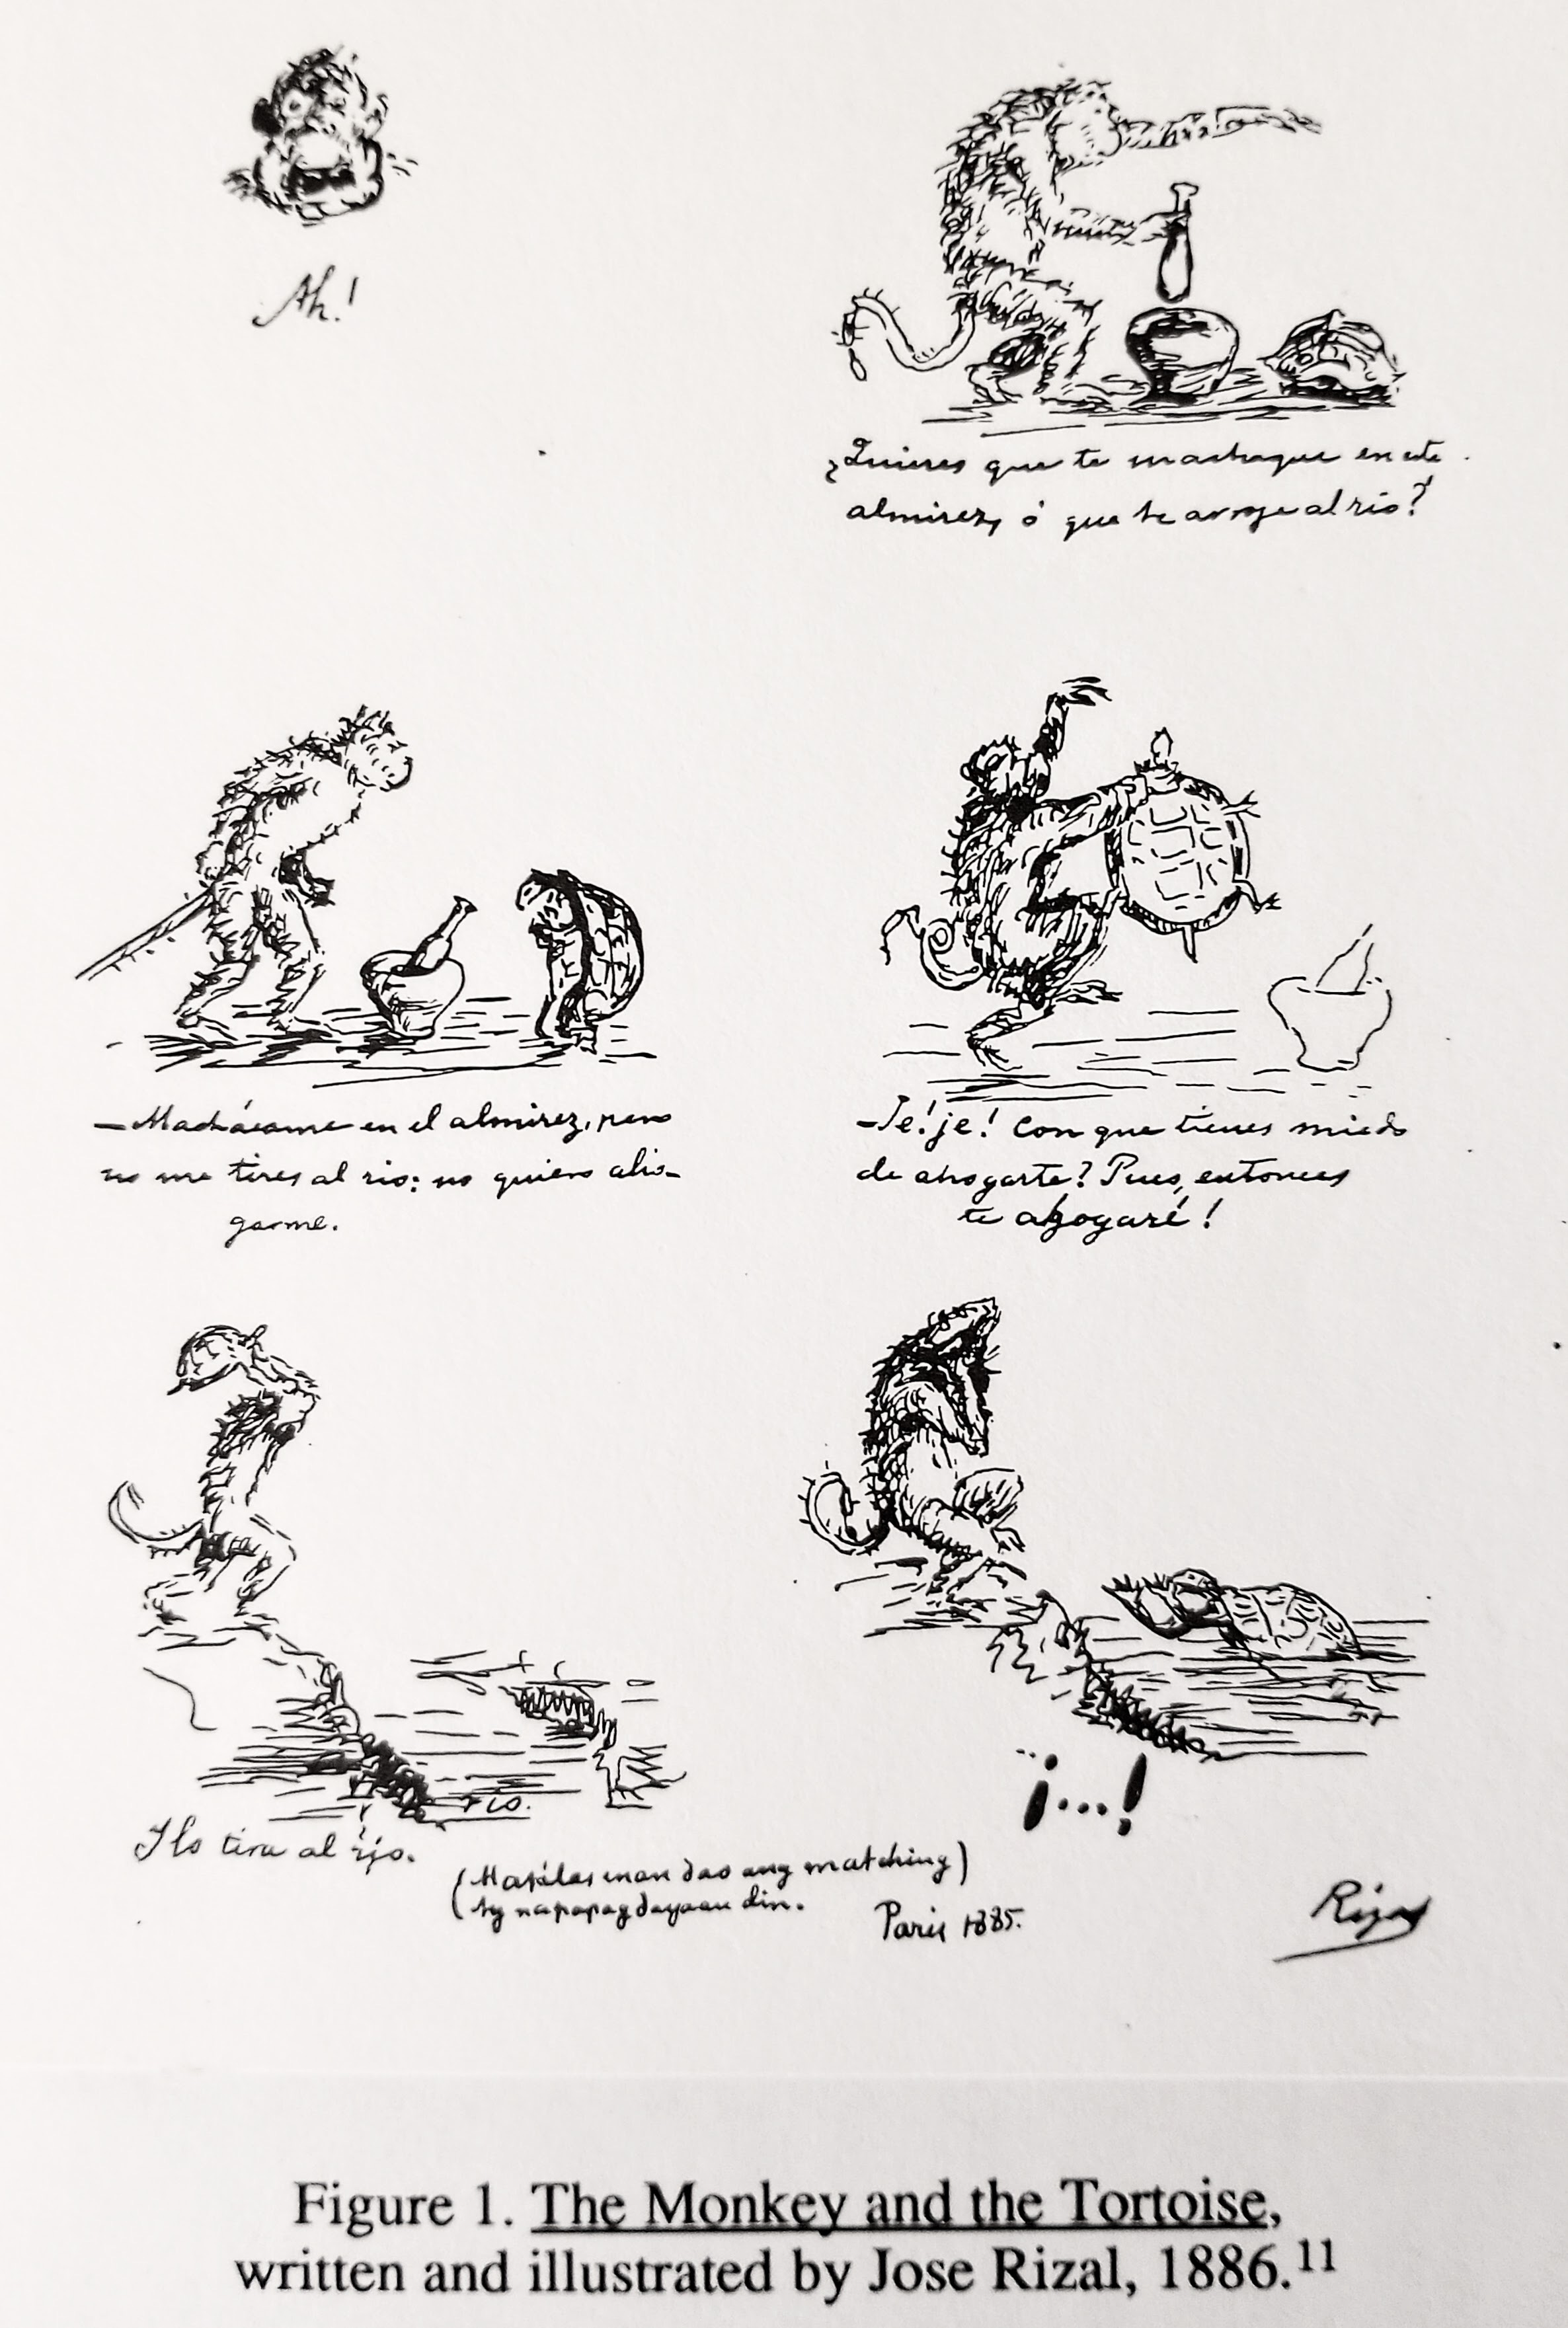 Ah!
¿Quieres que te machaque en este
almirez, ó que te arroje al río?
—Machácame en el almirez, pero
no me tires al rio: no quiero aho-
garme.
-Je! je! Con que tienes miedo
de ahogarte? Pues, entonces
te ahogaré!
Y lo tira al río.
rio.
¡...!
(ang matching)
ay napapagdayaan din.
Paris 1885.
Rizal
Figure 1. The Monkey and the Tortoise,
written and illustrated by Jose Rizal, 1886.¹¹